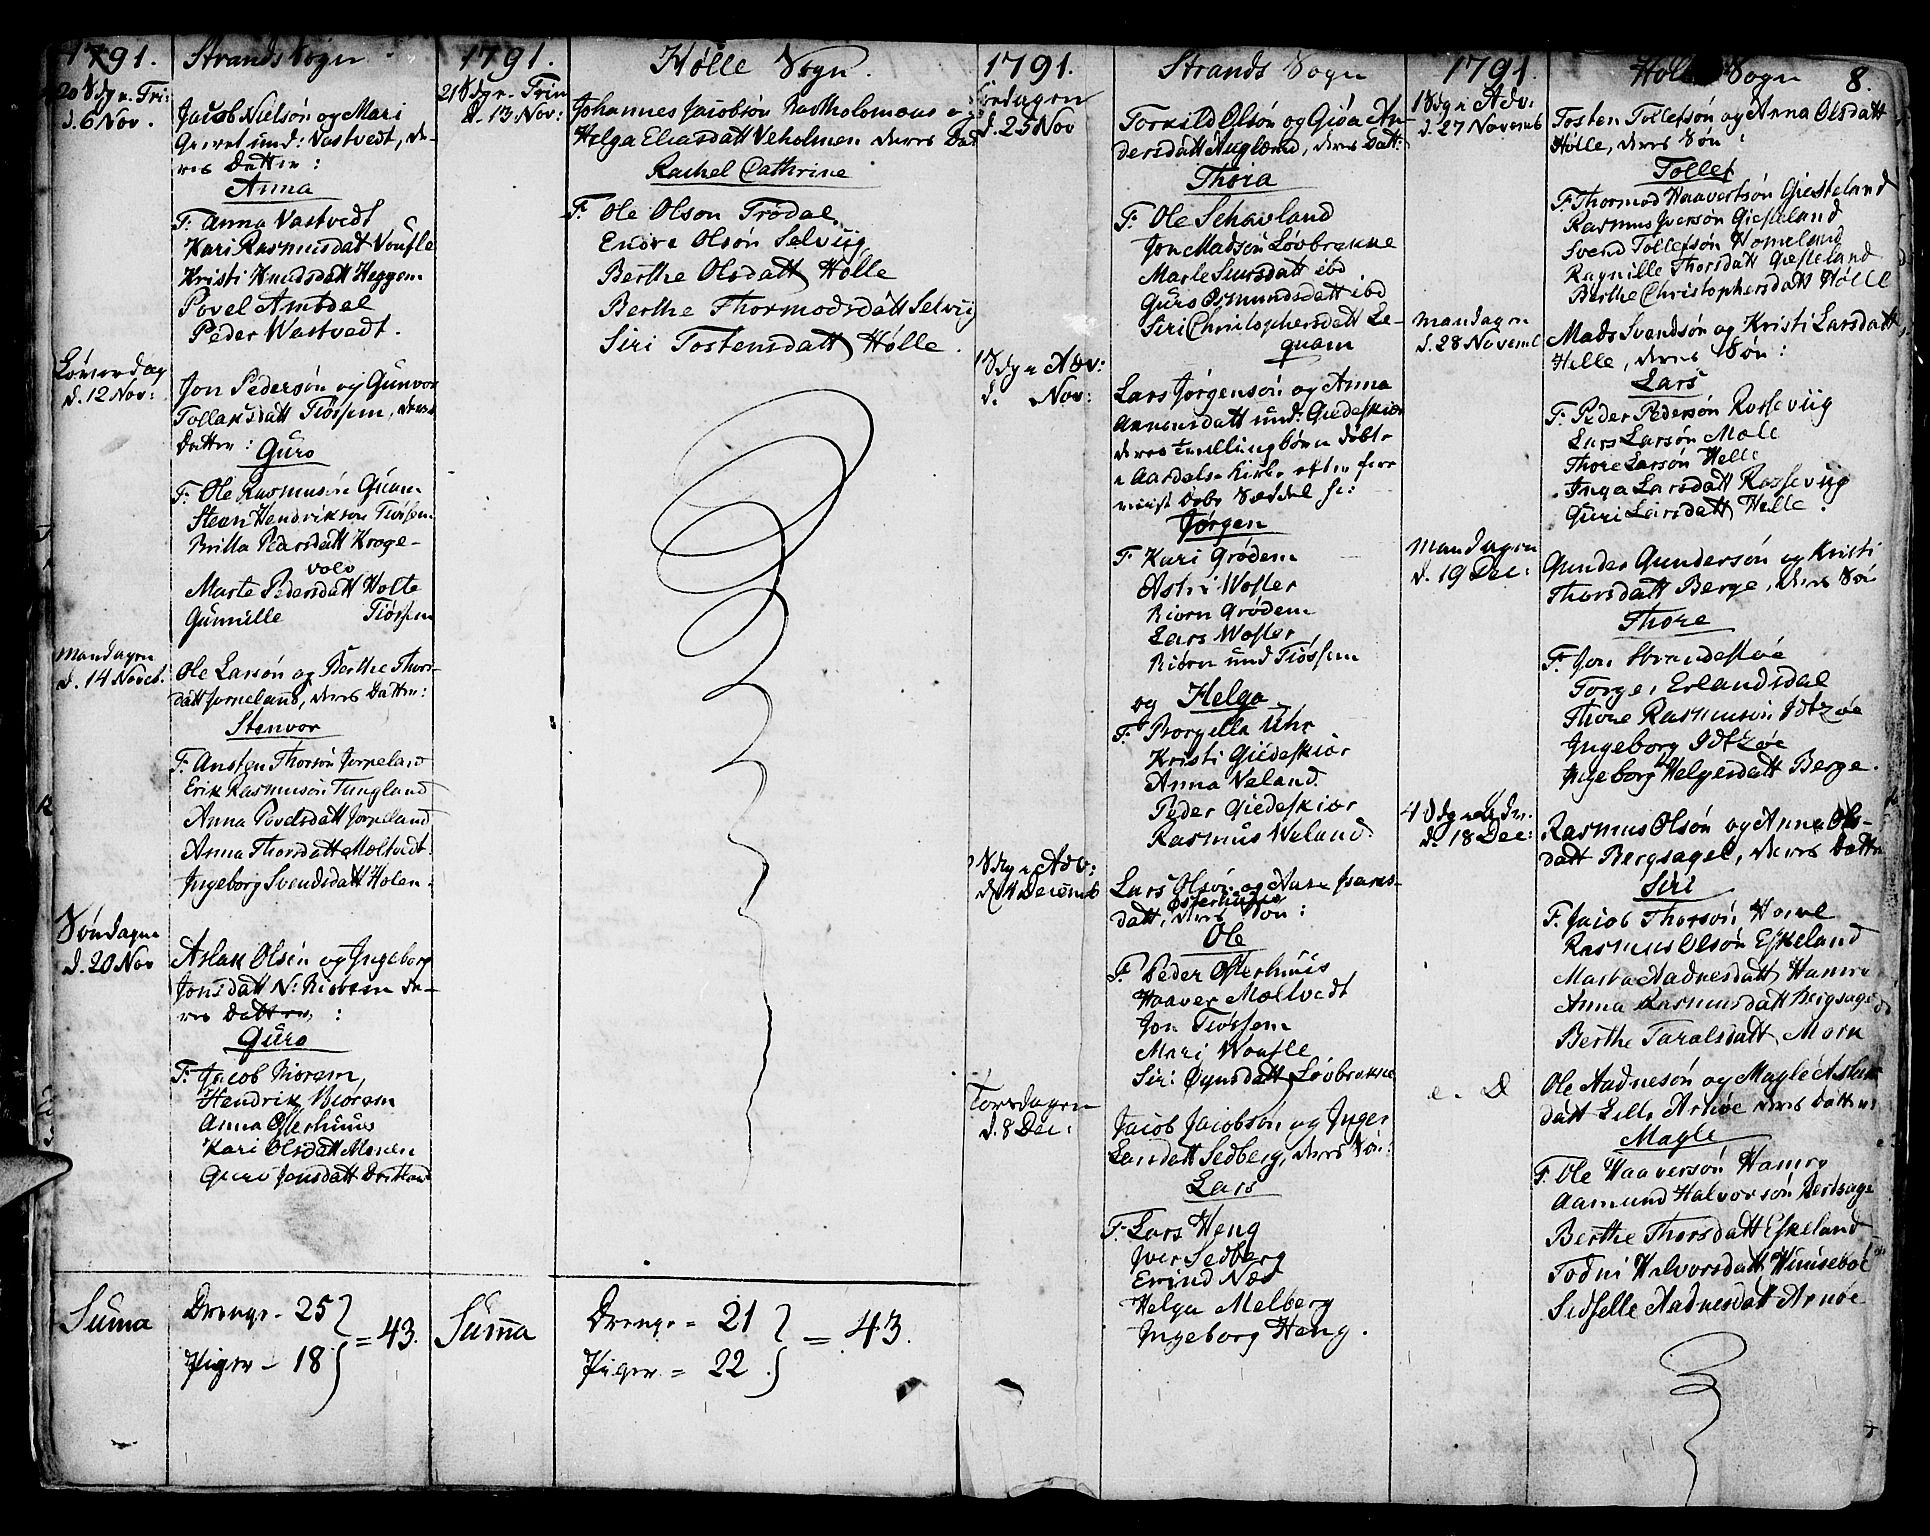 1791.
Strands Sogn
20 Sdg e. Tri:
d. 6 Nov.
Jacob Nielsøn og Mari
und: Vastvedt, de-
res Datter:
Anna
F. Anna Vastvedt
Kari Rasmusdatt Voufle
Kristi Knudsdatt Heggem
Povel Amdal
Peder Wastvedt.
Løverdag
d. 12 Nov:
Jon Pedersøn og Gunvor
Tollaksdatt Tiøssem, deres
Datter:
Guro
F. Ole Rasmusøn Quam
Steen Hendrikson Tiøssem
Britta Pedersdatt Kroge-
volv
Marte Pedersdatt Holte
Gunnille Tiøssem
Mandagen
d. 14 Noveb.
Ole Larsøn og Berthe Thors-
datt Jørpeland, deres Datter:
Stenvor
F. Austen Thorsøn Jørpeland
Erik Rasmusøn Tungland
Anna Povelsdatt Jørpeland
Anna Thorsdatt Mæltvedt
Ingeborg Svendsdatt Holen
Søndagen
d. 20 Nov
Aslak Olsøn og Ingeborg
Jonsdatt N: Biørem de-
res Datter:
Guro
F. Jacob Biørem,
Hendrik Biørem
Anna Østerhuus
Kari Olsdatt Monen
Guro Jonsdatt
Suma
Drenge - 25
Piger - 18
= 43.
1791.
Hølle Sogn.
21 Sdg e. Trin
d. 13 Nov:
Johannes Jacobsøn Bartholomæus og
Helga Eliasdatt Veholmen deres Dat
Rachel Cathrine
F. Ole Olson Trødal
Endre Olsøn Selviig
Berthe Olsdatt Hølle
Berthe Thormodsdatt Selviig
Siri Tostensdatt Hølle.
Suma
Drenge = 21
Piger = 22
= 43.
1791.
Strands Sogn
d. 25 Nov
Torkild Olsøn og Giøa An-
dersdatt Auglend, deres Datt:
Thora
F. Ole Schavland
Jon Madsøn Løvbrekke
Marte Siursdatt ibd
Guro Osmundsdatt ibd
Siri Christophersdatt Le-
quam
1 Sdg e Adv:
d. Nov:
Lars Jørgensøn og Anna
und: Giedeskiær
deres Tvillingbørn døbt
i Aardals Kirke efter for
Døbe Seddel
Jørgen
F. Kari Grødem
Astri Wofler
Biørn Grødem
Lars Wofler
Biørn und Tiøssem
og Helga
F. Borgilla Uhr
Kristi Giedeskiær
Anna Veland.
Peder Giedeskiær
Rasmus Weland
2 Sdg e Adv:
d. 4 Decemb
Lars Olsøn og Anna Isaks-
Østerhuus
datt, deres Søn:
Ole
F. Peder Østerhuus
Haaver Mæltvedt
Jon Tiøssem
Mari Woufle
Siri Øynsdatt Løvbrekke
Torsdagen
d. 8 Dec:
Jacob Jacobsøn og Inger
Larsdatt Sedberg, deres Søn:
Lars
F. Lars Heng
Iver Sedberg
Erind Næs
Helga Melberg
Ingeborg Heng.
1791.
Sogn
8.
1 Sdg e Adv.
d. 27 Novemb
Tosten Tollefsøn og Anna Olsdatt
Hølle, deres Søn:
Tollef
F. Thormod Haavertsøn Giesteland
Rasmus Iversøn Giesteland
Svend Tollefsøn Homeland
Ragnille Thorsdatt Giesteland
Berthe Christophersdatt Hølle
Mandagen
d. 28 Novemb
Mads Svendsøn og Kristi Larsdatt
Helle, deres Søn:
Lars
F. Peder Pedersøn Rosseviig
Lars Larsøn Mæle
Thore Larsøn Helle
Inga Larsdatt Rosseviig
Guri Larsdatt Helle.
Mandagen
d. 19 Dec:
Gunder Gundersøn og Kristi
Thorsdatt Berge, deres Søn
Thore
F. Jon Strandestøe
Torge, Erlandsdal
Thore Rasmusøn Idtzøe
Ingeborg Idtzøe
Ingeborg Helgesdatt Berge.
4 Sdg e
d. 18 Dec:
Rasmus Olsøn og Anna Ols-
datt Bergsagel, deres Datter
Siri
F. Jacob Thorsøn
Rasmus Olsøn Eskeland
Marta Aadnesdatt Hamre
Anna Rasmusdatt Bergsagel
Berthe Taralsdatt Mørk
e. D
Ole Aadnesøn og Magle Aslak
datt Lille Arnøe deres Datter
Magle
F. Ole Haaversøn Hamre
Aamund Halvorsøn
Berthe Thorsdatt Eskeland
Todni Halvorsdatt
Sidselle Aadnesdatt Arnøe